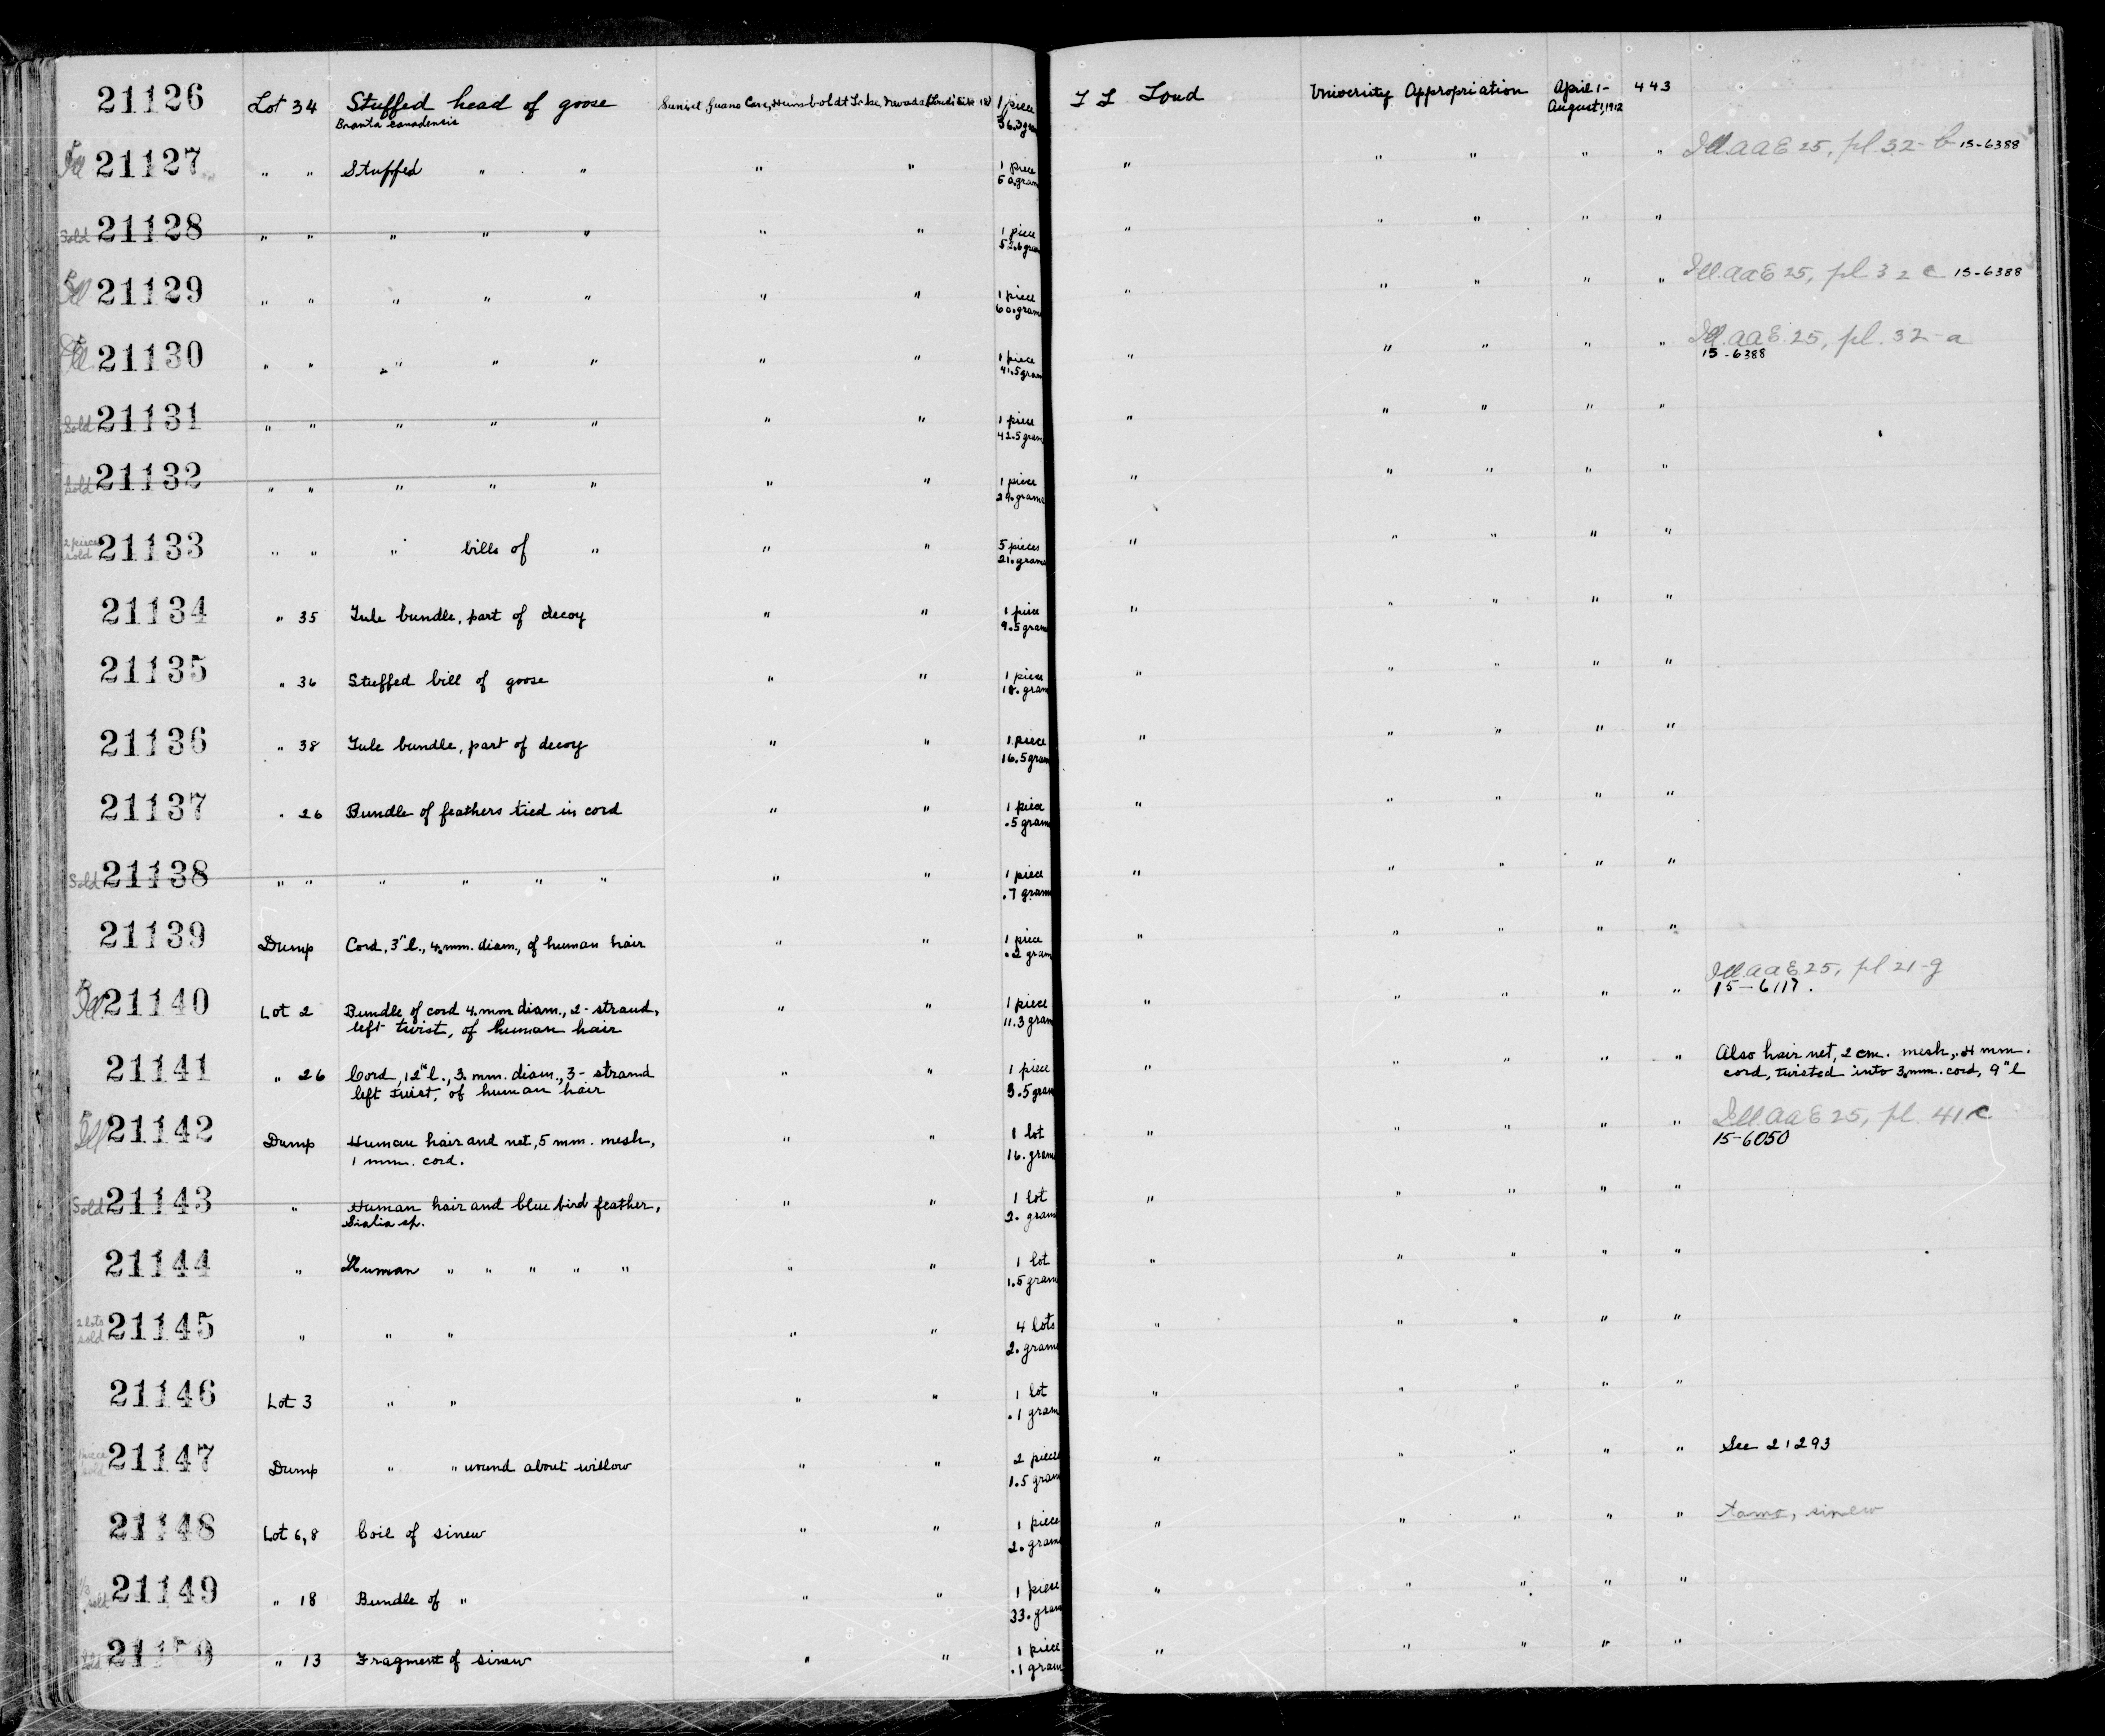 21126 Lot 34 Stuffed head of goose Sunset Guano Cave, Humboldt Lake, Nevada 1 piece L L Loud University Appropriation April 1- 443
Branta canadensis 36.3 gram August 1, 1912
Ill 21127 " " Stuffed " " " " 1 piece " " " " " Ill. AAE 25, pl. 32-b 15-6388
50. gram
Sold 21128 " " " " " " " 1 piece " " " " "
52.6 gram
Ill 21129 " " " " " " " 1 piece " " " " " Ill. AAE 25, pl 32 c 15-6388
60. gram
Ill 21130 " " " " " " " 1 piece " " " " " Ill. AAE. 25, pl. 32-a
41.5 gram 15-6388
Sold 21131 " " " " " " " 1 piece " " " " "
42.5 gram
Sold 21132 " " " " " " " 1 piece " " " " "
29. gram
2 pieces sold 21133 " " " bills of " " " 5 pieces " " " " "
21. gram
21134 " 35 Tule bundle, part of decoy " " 1 piece " " " " "
9.5 gram
21135 " 36 Stuffed bill of goose " " 1 piece " " " " "
18. gram
21136 " 38 Tule bundle, part of decoy " " 1 piece " " " " "
16.5 gram
21137 " 26 Bundle of feathers tied in cord " " 1 piece " " " " "
.5 gram
Sold 21138 " " " " " " " " 1 piece " " " " "
.7 gram
21139 Dump Cord, 3" l., 4. mm. diam., of human hair " " 1 piece " " " " "
.2 gram
Ill. 21140 Lot 2 Bundle of cord 4. mm diam., 2-strand, " " 1 piece " " " " " Ill. AAE 25, pl 21-g
left twist, of human hair 11.3 gram 15-6117.
21141 " 26 Cord, 12" l., 3. mm. diam., 3-strand " " 1 piece " " " " " Also hair net, 2 cm. mesh, .4 mm.
left twist, of human hair 3.5 gram cord, twisted into 3. mm. cord, 9" l
Ill 21142 Dump Human hair and net, 5 mm. mesh, " " 1 lot " " " " " Ill. AAE 25, pl. 41 c
1 mm. cord. 16. gram 15-6050
Sold 21143 " Human hair and blue bird feather, " " 1 lot " " " " "
Sialia sp. 2. gram
21144 " Human " " " " " " " 1 lot " " " " "
1.5 gram
2 lots sold 21145 " " " " " 4 lots " " " " "
2. gram
21146 Lot 3 " " " " 1 lot " " " " "
.1 gram
1 piece sold 21147 Dump " " wound about willow " " 2 pieces " " " " " See 21293
1.5 gram
21148 Lot 6,8 Coil of sinew " " 1 piece " " " " " sinew
2. gram
21149 " 18 Bundle of " " " 1 piece " " " " "
33. gram
21150 " 13 Fragment of sinew " " 1 piece " " " " "
.1 gram